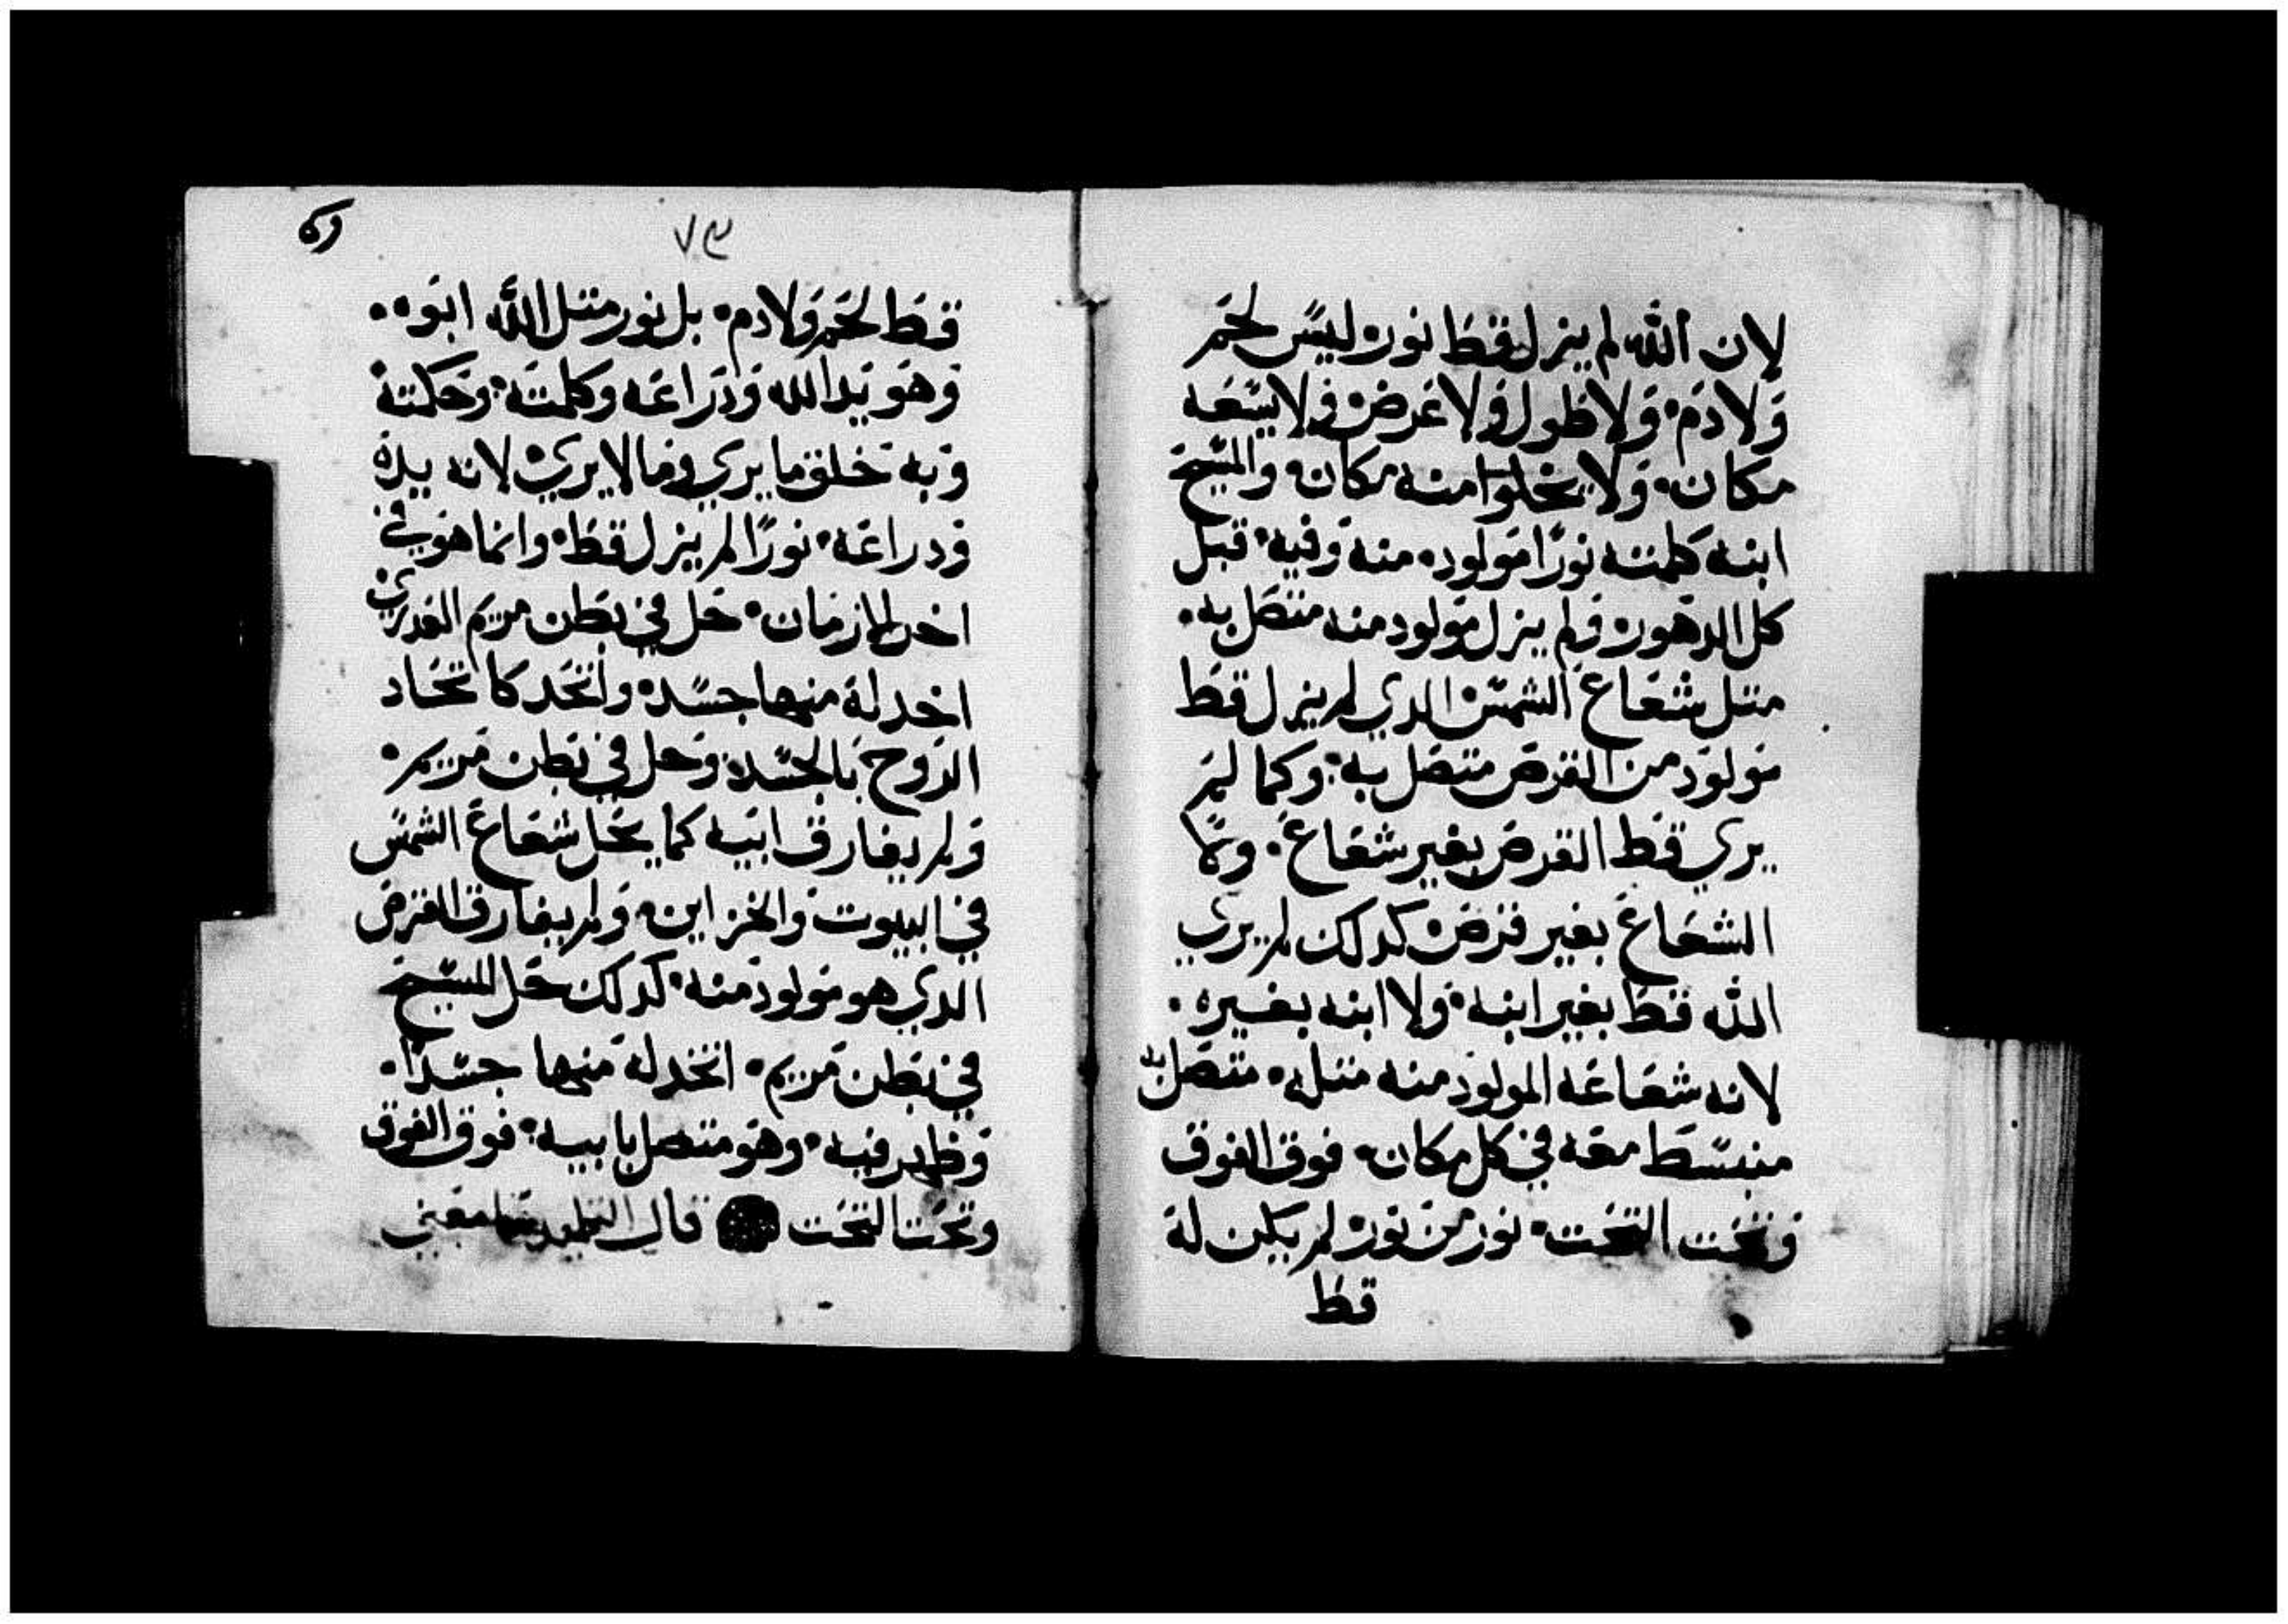 لان الله لم يزل قط نور ليس لحم
ولا دم ولا طول ولا عرض ولا يسعه
مكان ولا يخلوا منه مكان والمسيح
ابنه كلمته نورًا مولود منه وفيه قبل
كل الدهور ولم يزل مولود منه متصل به
متل شعاع الشمس الدي لم يزل قط
مولود من القرص متصل به وكما لم
يري قط القرص بغير شعاع ولا
الشعاع بغير قرص كدلك لم يري
الله قط بغير ابنه ولا ابنه بغيره
لانه شعاعه المولود منه متله متصل به
منبسط معه في كل مكان فوق الفوق
وتحت التحت نور من نور لم يكن له
قط
٧٩
قط لحم ولا دم بل نور متل الله ابوه
وهو يد الله ودراعه وكلمته وحكمته
وبه خلق ما يري وما لا يري لانه يده
ودراعه نورًا لم يزل قط وانما هو في
اخر الازمان حل في بطن مريم العدري
اخد له منها جسد واتحد كاتحاد
الروح بالجسد وحل في بطن مريم
ولم يفارق ابيه كما يحل شعاع الشمس
في البيوت والخزاين ولم يفارق القرص
الدي هو مولود منه كدلك حل المسيح
في بطن مريم اتخد له منها جسدًا
وظهر فيه وهو متصل بابيه فوق الفوق
وتحت التحت قال